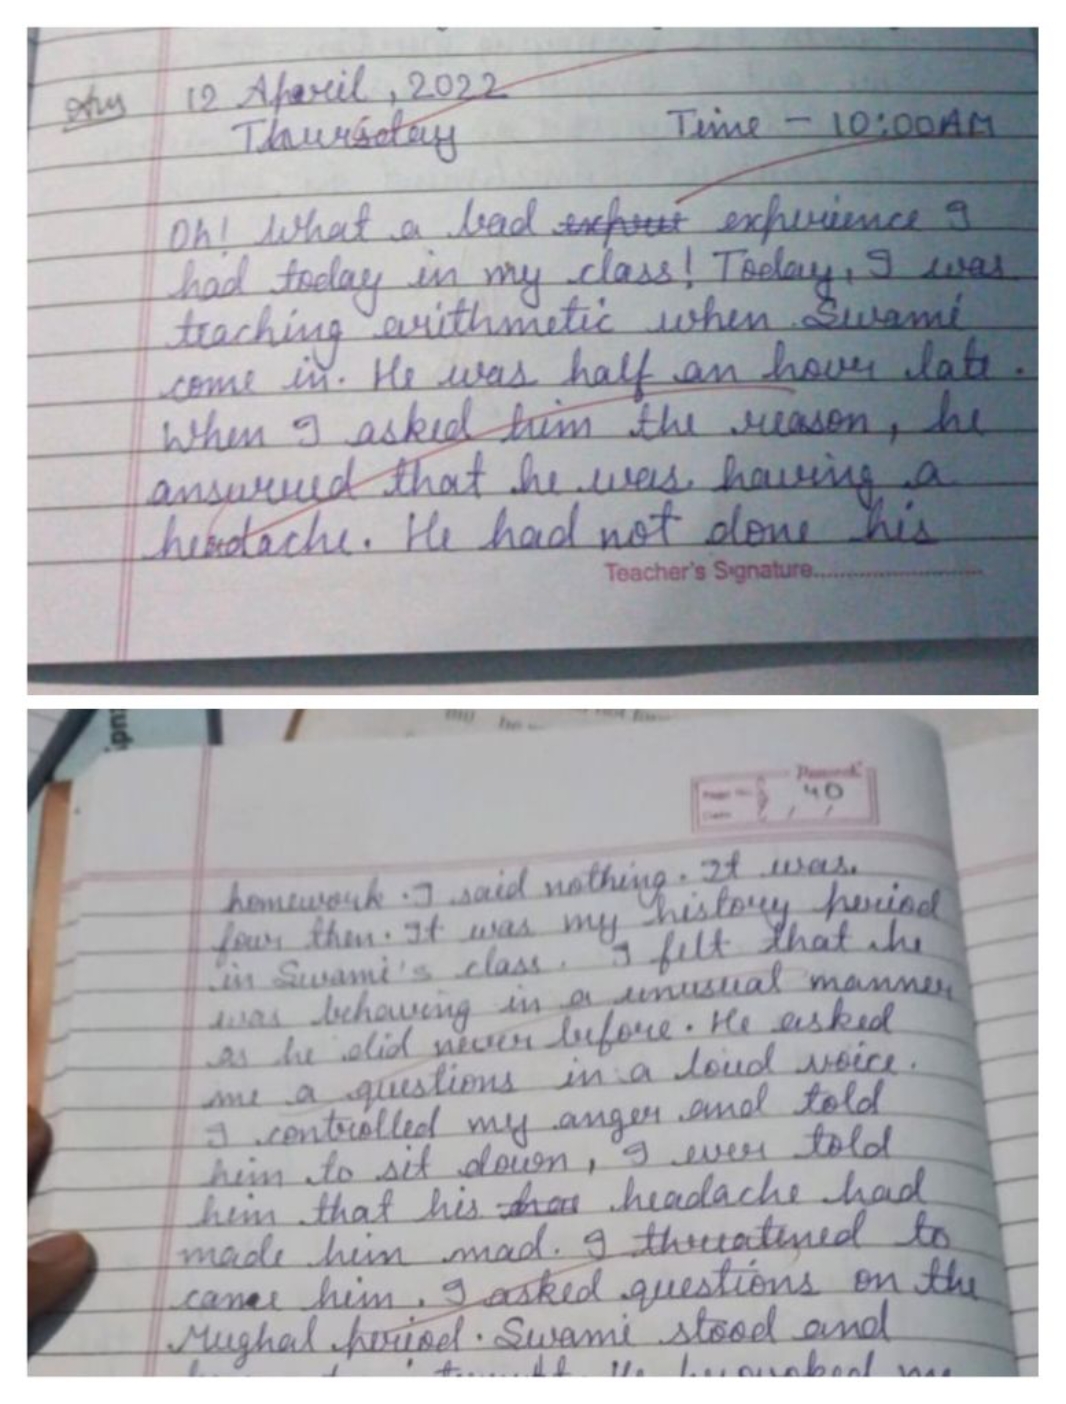 Ans
12 April, 2022
Thursday Time - 10:00AM
Oh! What a bad experience I
had today in my class! Today, I was
teaching arithmetic when Swami
come in. He was half an hour late.
When I asked him the reason, he
answered that he was having a
headache. He had not done his
Teacher's Signature
40
homework. I said nothing. It was.
four then. It was my history period
in Swami's class. I felt that he
was behaving in a unusual manner
as he did never before. He asked
me a questions in a loud voice.
I controlled my anger and told
him to sit down, I ever told
him that his headache had
made him mad. I threatened to
cane him. I asked questions on the
Mughal period. Swami stood and
He provoked me